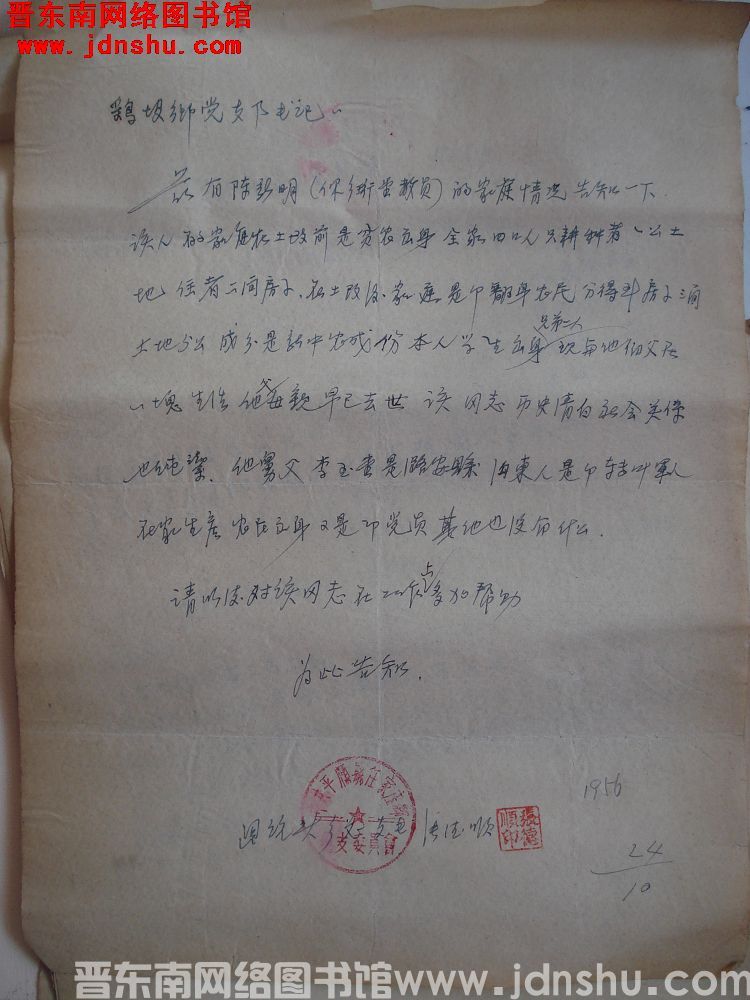 晋东南网络图书馆
www.jdnshu.com
乡党支部书记：
兹有陈新明（你乡 教员）的家庭情况告知一下
该人的家庭在土改前是贫农出身 全家四口人只耕种着 土
地 住着二间房子，在土改后家庭是个翻身农民 分得到房子三间
土地 成分是新中农成份 本人学生出身 现与他伯父居
兄弟二人
一块生活 他父母亲早已去世 该同志历史清白社会关系
也纯洁。他舅父李玉 是潞安县 東人是个转业军人
在家生产 农民出身又是个党员 其他也没有什么。
请以后对该同志在工作上多加帮助
为此告知。
平順 任家庄
支委員會
支书 张德順
張德順印
1956
24/10
晋东南网络图书馆www.jdnshu.com